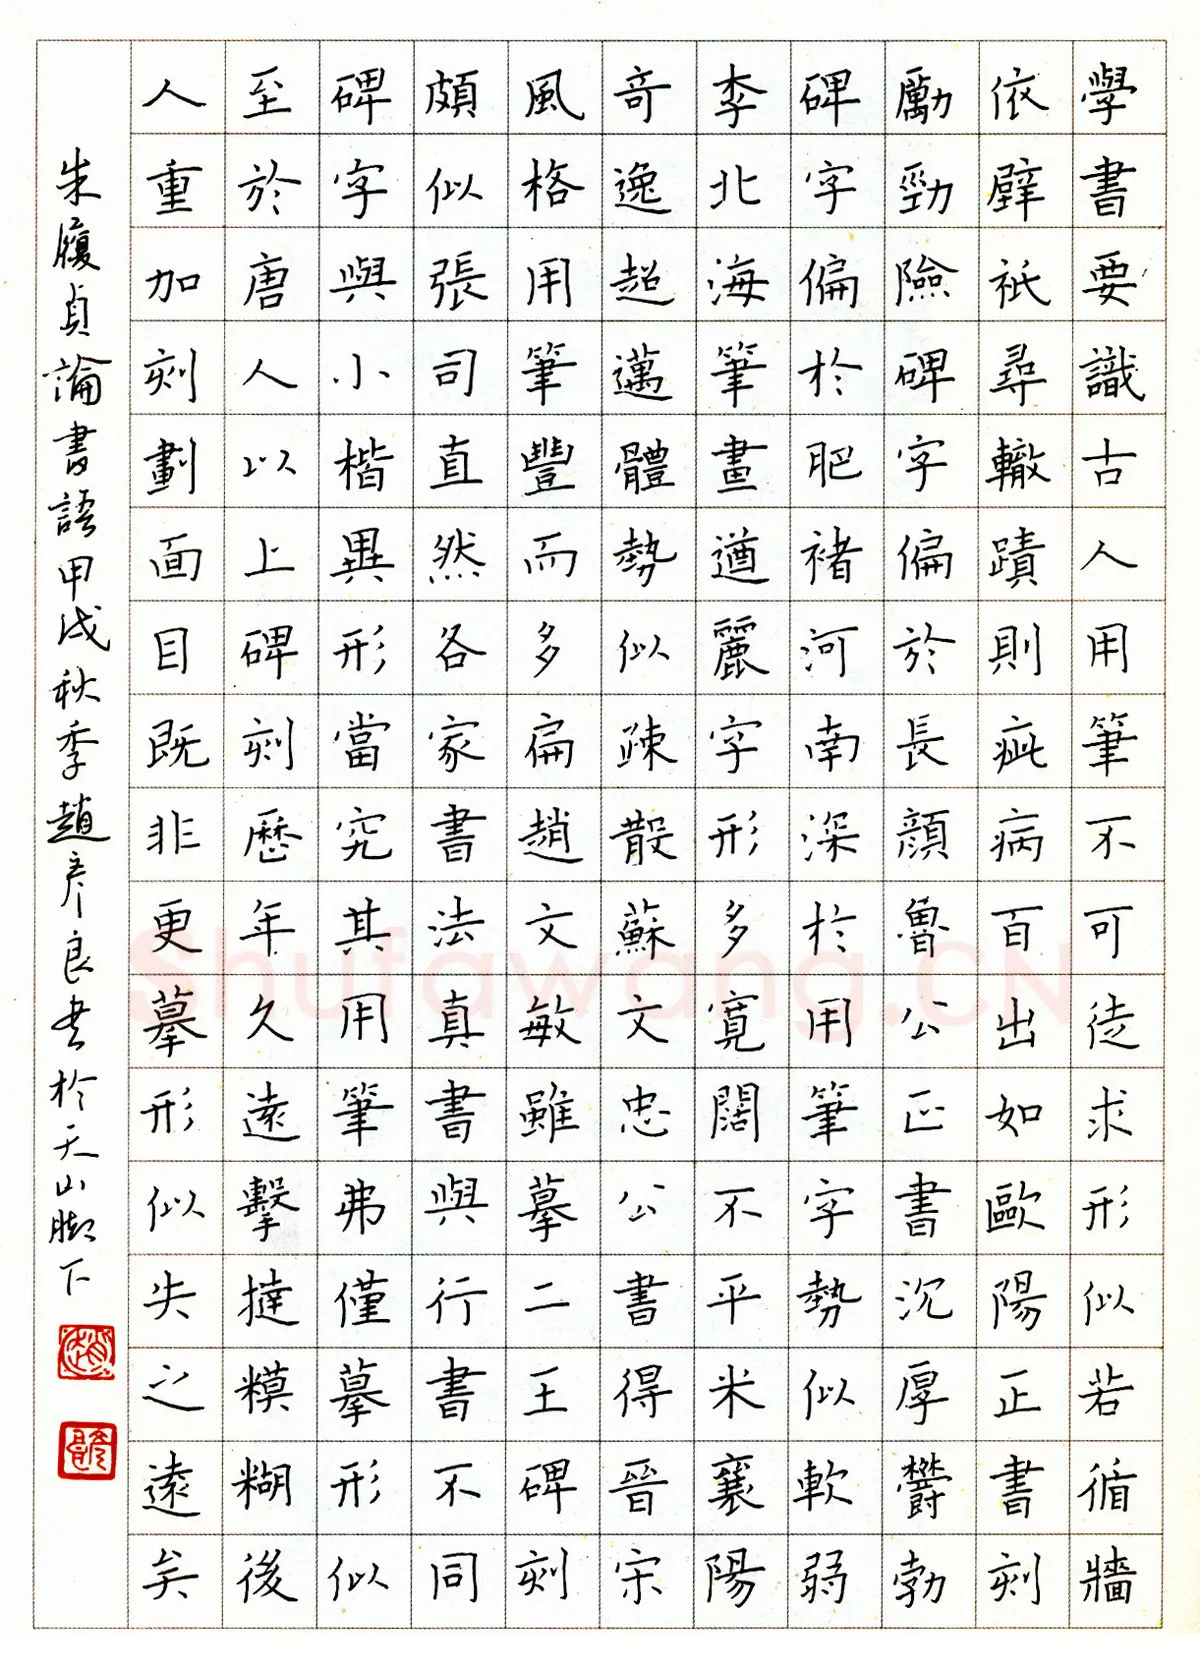 學書要識古人用筆不可徒求形似若循牆
依壁衹尋轍蹟則疵病百出如歐陽正書刻
勵勁險碑字偏於長顔魯公正書沉厚鬱勃
碑字偏於肥褚河南深於用筆字勢似軟弱
李北海筆畫遒麗字形多寬闊不平米襄陽
竒逸超邁體勢似疎散蘇文忠公書得晉宋
風格用筆豐而多扁趙文敏雖摹二王碑刻
頗似張司直然各家書法真書與行書不同
碑字與小楷異形當究其用筆弗僅摹形似
至於唐人以上碑刻歷年久遠擊撻糢糊後
人重加刻劃面目既非更摹形似失之遠矣
朱履貞論書語甲戌秋季趙彥良书於天山脚下
Shufawang.CN